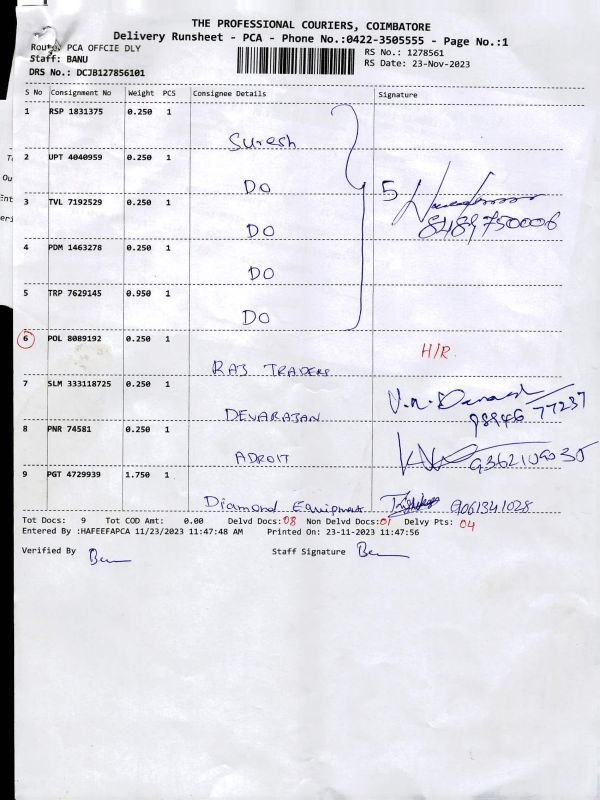 THE PROFESSIONAL COURIERS, COIMBATORE
Delivery Runsheet - PCA - Phone No.:0422-3505555 - Page No.:1
Route: PCA OFFCIE DLY
RS No.: 1278561
Staff: BANU
RS Date: 23-Nov-2023
DRS No.: DCJB127856101
S No Consignment No Weight PCS Consignee Details Signature
1 RSP 1831375 0.250 1
Suresh
2 UPT 4040959 0.250 1
DO
5
8489750006
3 TVL 7192529 0.250 1
DO
4 PDM 1463278 0.250 1
DO
5 TRP 7629145 0.950 1
DO
6 POL 8089192 0.250 1
H/R.
RAJ TRADERS
7 SLM 333118725 0.250 1
DEVARAJAN
8 PNR 74581 0.250 1
ADROIT
9 PGT 4729939 1.750 1
Diamond Equipment
9061341028
Tot Docs: 9 Tot COD Amt: 0.00 Delvd Docs:08 Non Delvd Docs:01 Delvy Pts: 04
Entered By :HAFEEFAPCA 11/23/2023 11:47:48 AM Printed On: 23-11-2023 11:47:56
Verified By
Staff Signature